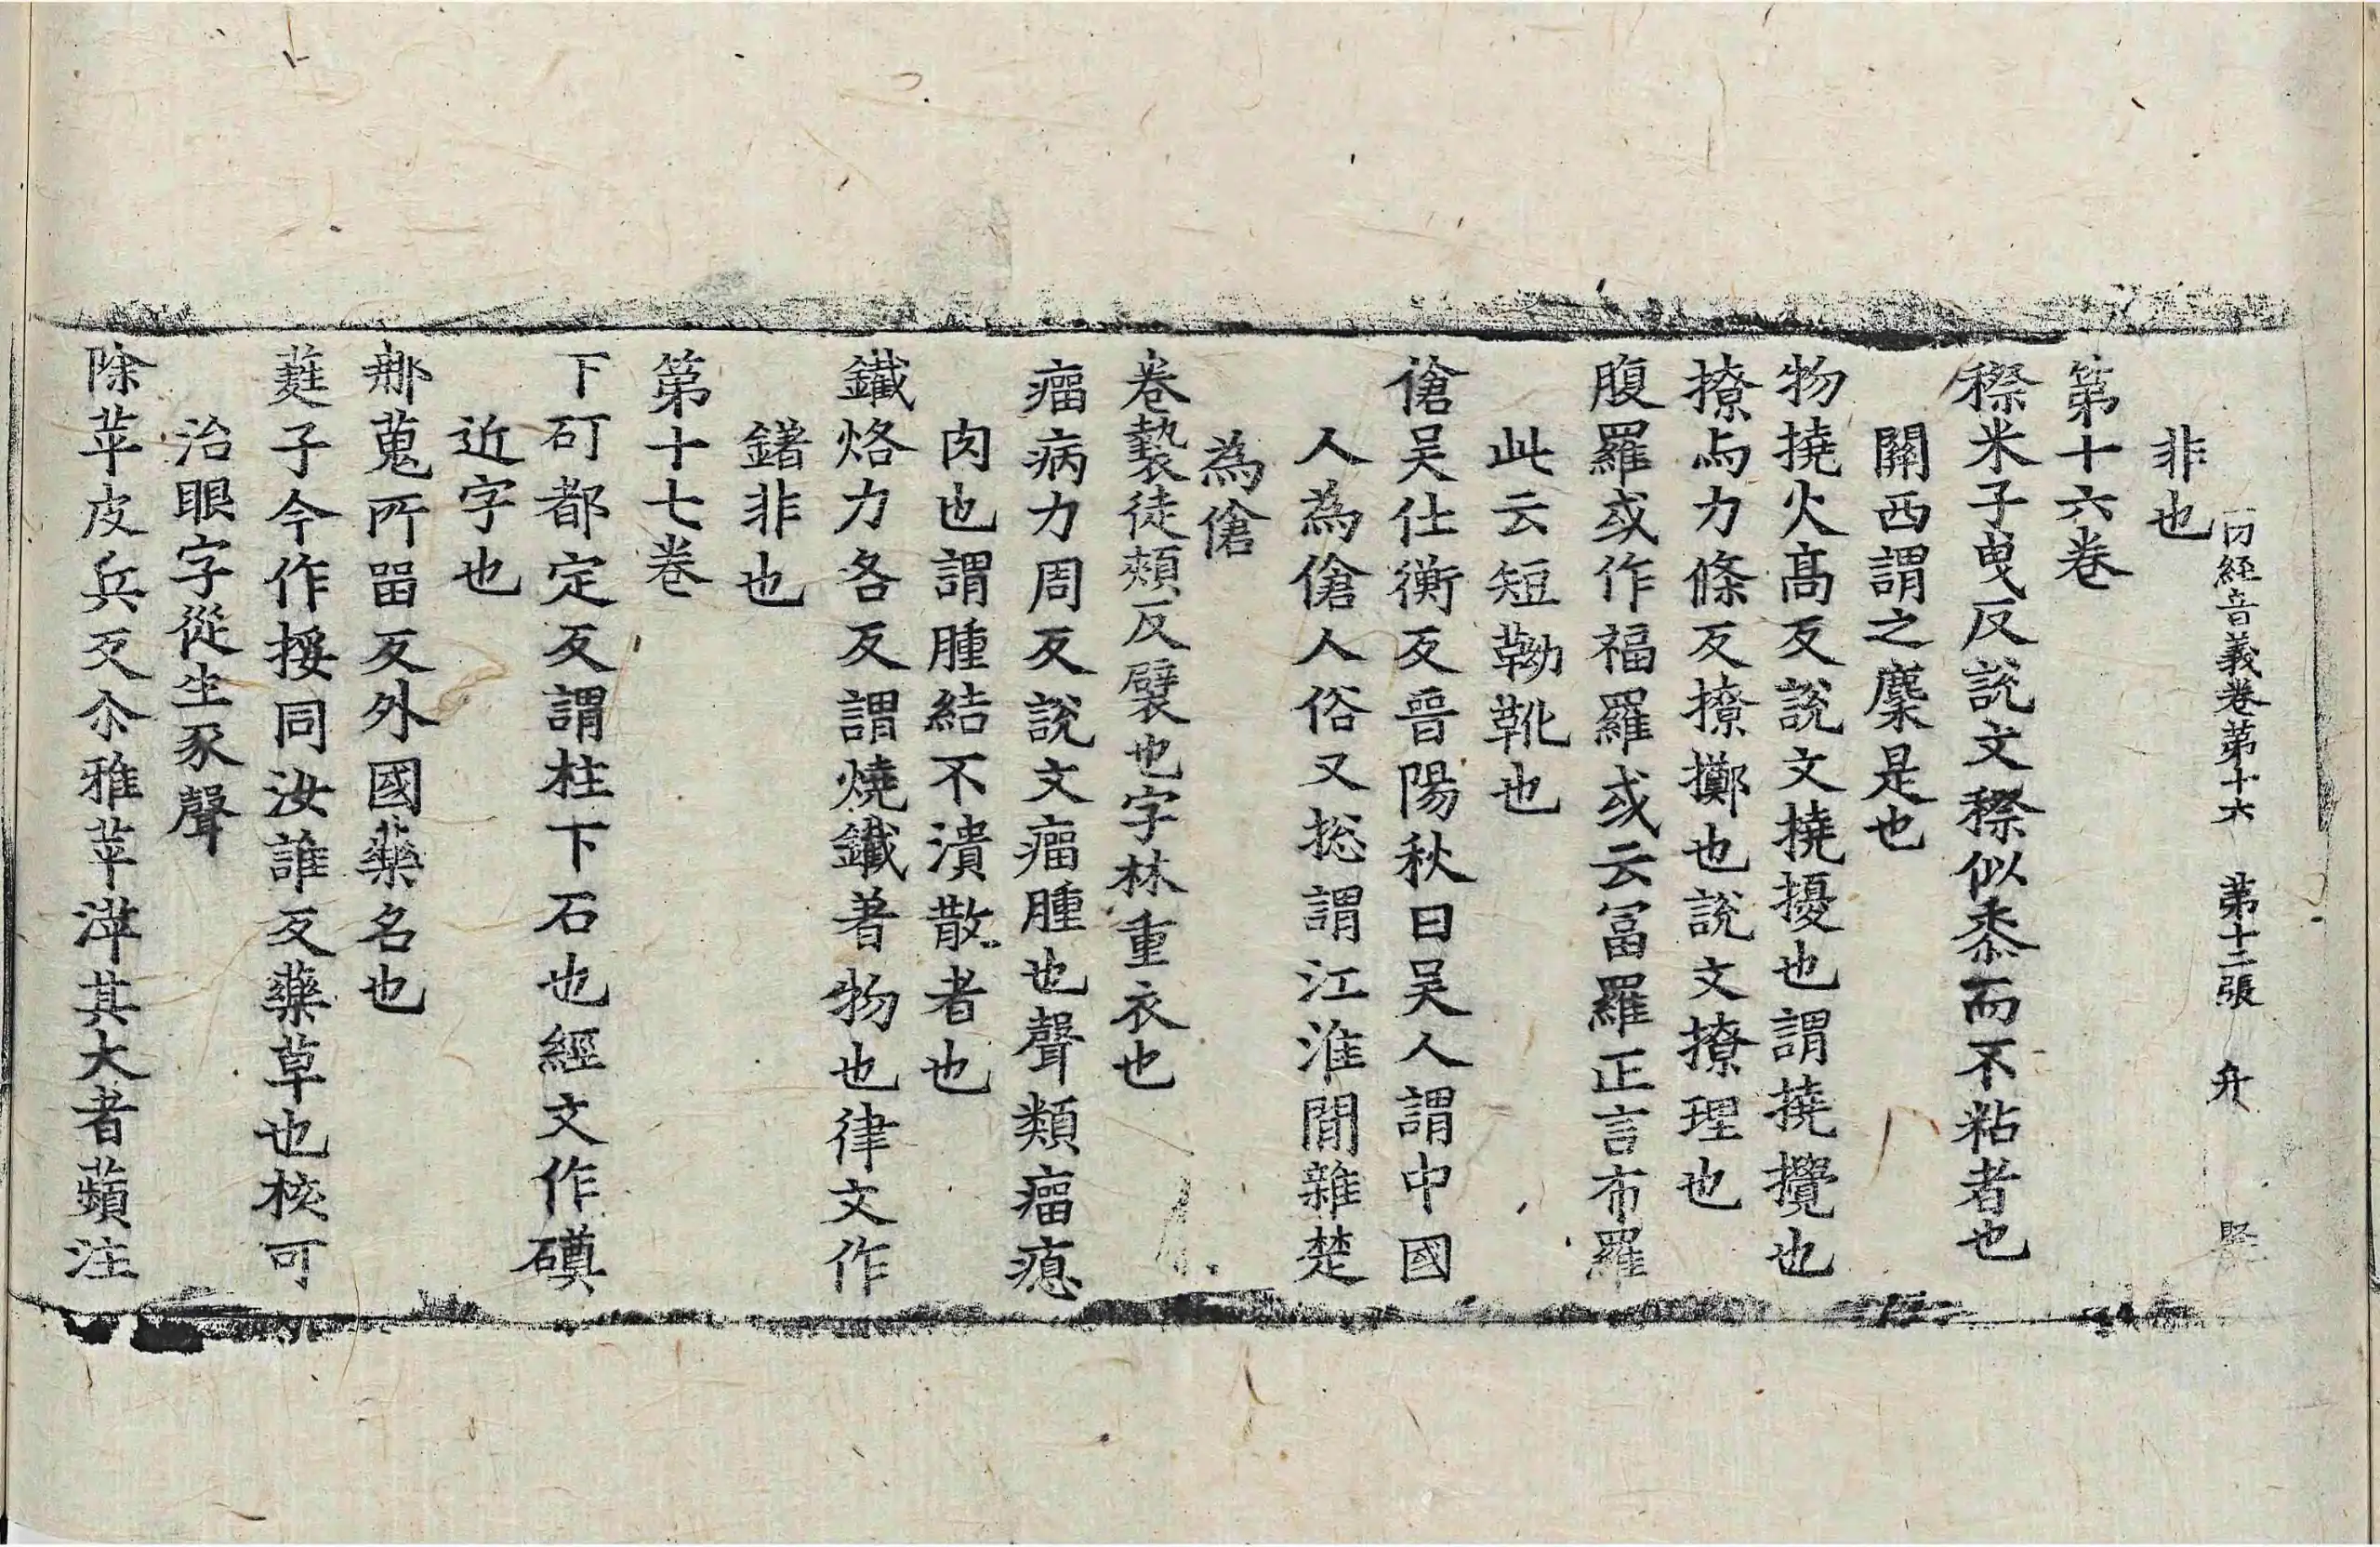 一切經音義卷第十六 第十二張 升
非也
第十六卷
穄米子曳反説文穄似黍而不粘者也
關西謂之䵚是也
物撓火髙反説文撓擾也謂撓攪也
撩与力條反撩擲也説文撩理也
腹羅或作福羅或云冨羅正言布羅
此云短靿靴也
傖吴仕衡反晉陽秋曰吴人謂中國
人為傖人俗又捴謂江淮間雜楚
為傖
卷㲲徒頰反襞也字林重衣也
瘤病力周反説文瘤腫也聲類瘤瘜
肉也謂腫結不潰散者也
鐵烙力各反謂燒鐵著物也律文作
鐯非也
第十七卷
下矴都定反謂柱下石也經文作磸
近字也
䣸蒐所留反外國藥名也
蕤子今作桵同汝誰反藥草也核可
治眼字從生豕聲
除苹皮兵反尒雅苹蓱其大者蘋注